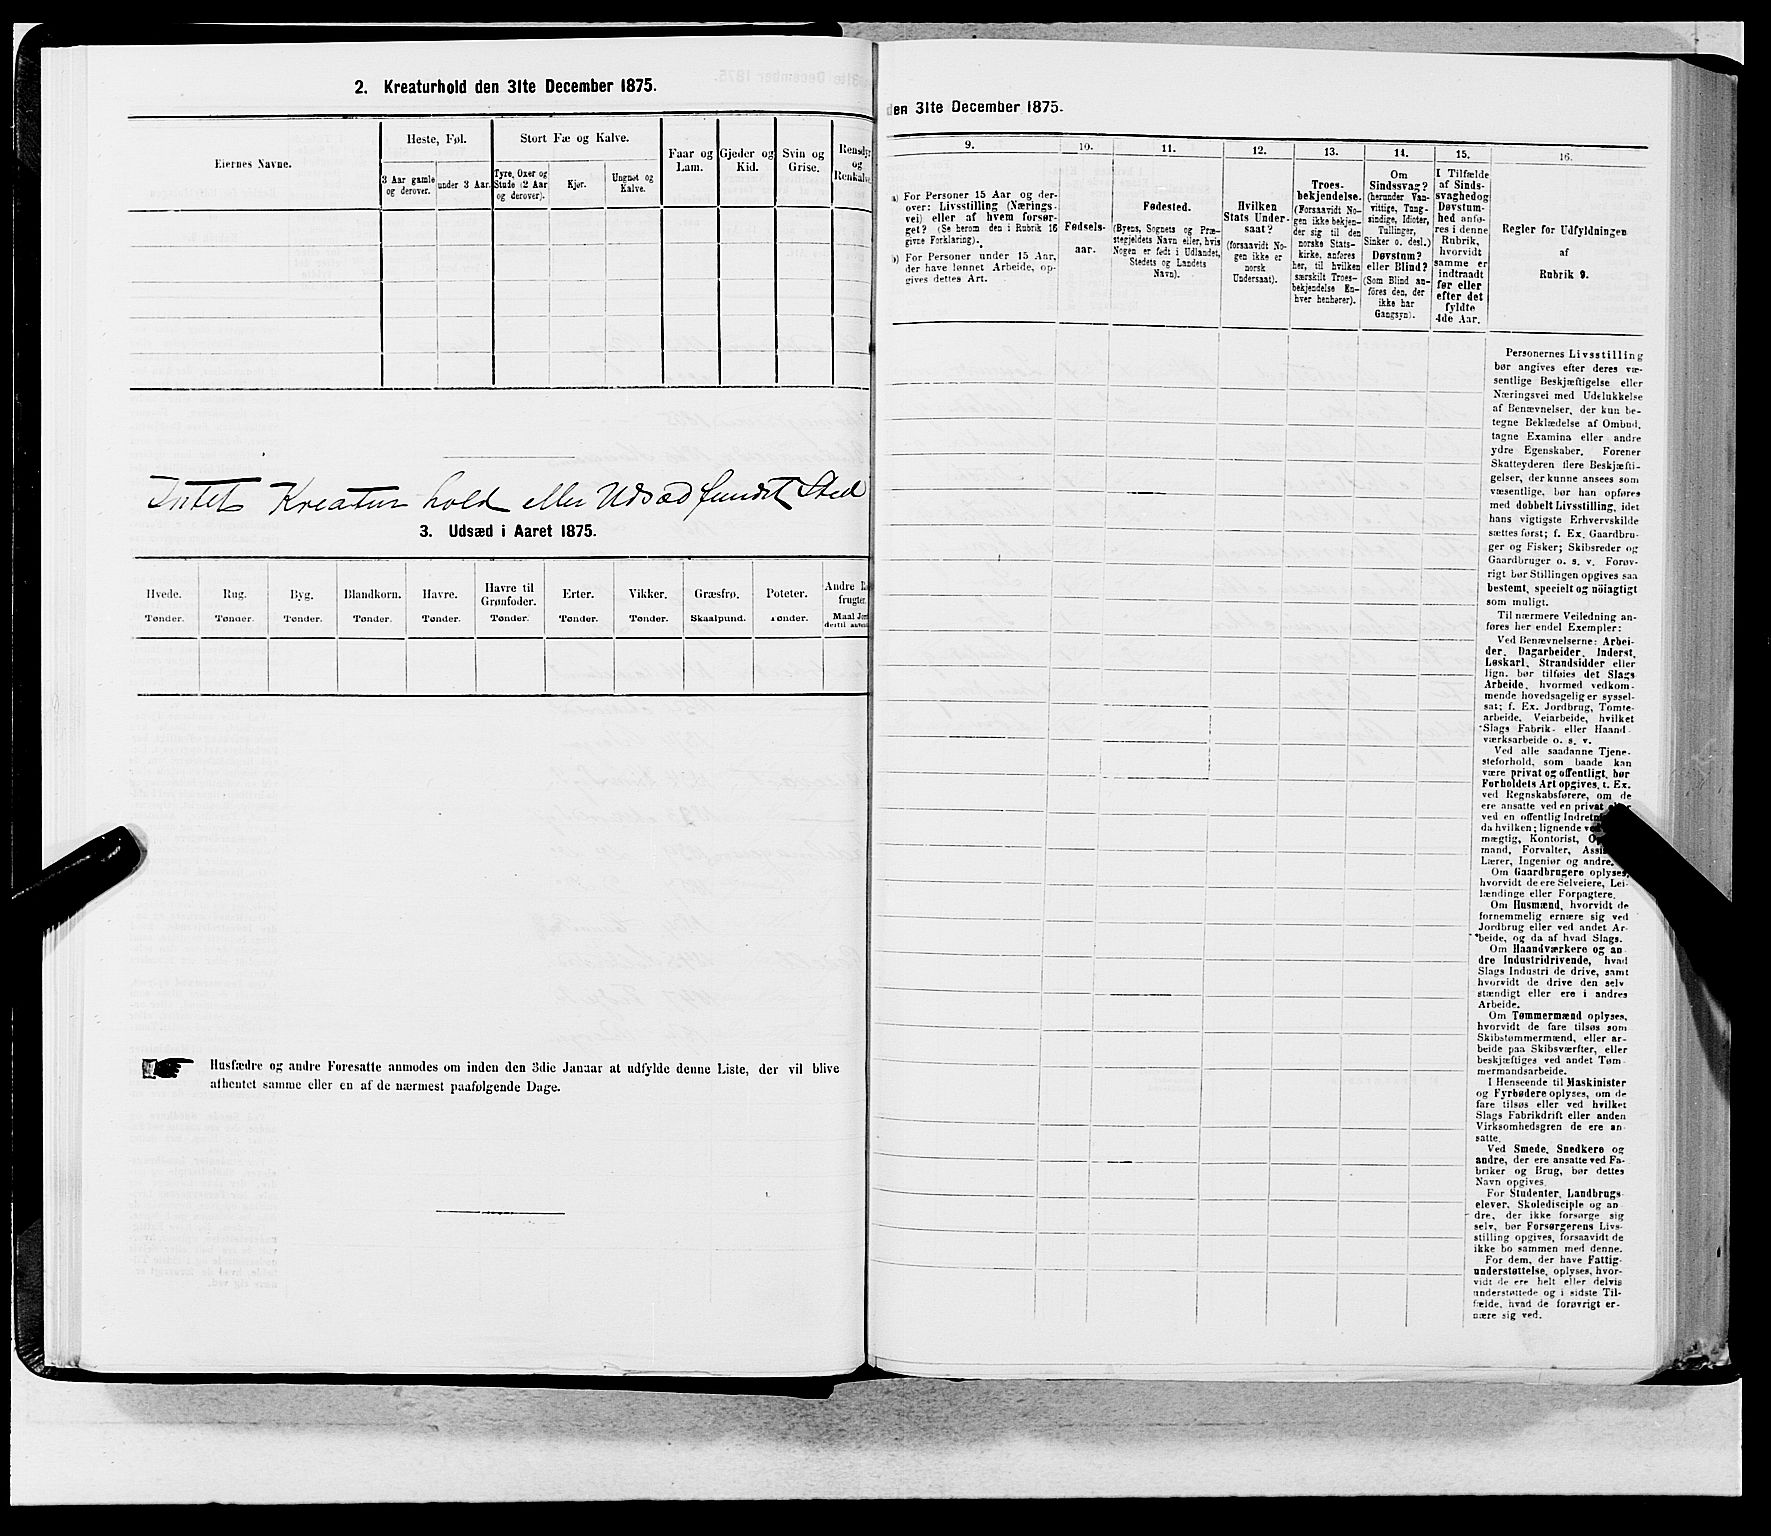 2. Kreaturhold den 31te December 1875.
Eiernes Navne.
Heste, Føl.
3 Aar gamle
og derover.
under 3 Aar.
Stort Fæ og Kalve.
Tyre, Oxer og
Stude (2 Aar
og derover).
Kjør.
Ungnøt og
Kalve.
Faar og
Lam.
Gjeder og
Kid.
Svin og
Grise.
Rensdyr
og
Renkalve
Intet Kreaturhold eller Udsæd fundet Sted
3. Udsæd i Aaret 1875.
Hvede.
Tønder.
Rug.
Tønder.
Byg.
Tønder.
Blandkorn.
Tønder.
Havre.
Tønder.
Havre til
Grønfoder.
Tønder.
Erter.
Tønder.
Vikker.
Tønder.
Græsfrø.
Skaalpund.
Poteter.
Tønder.
Andre
frugter.
Maal
dertil
Husfædre og andre Foresatte anmodes om inden den 3die Januar at udfylde denne Liste, der vil blive
afhentet samme eller en af de nærmest paafølgende Dage.
den 31te December 1875.
9.
a) For Personer 15 Aar og der-
over: Livsstilling (Nærings-
vei) eller af hvem forsør-
get? (Se herom den i Rubrik 16
givne Forklaring).
b) For Personer under 15 Aar,
der have lønnet Arbeide, op-
gives dettes Art.
10.
Fødsels-
aar.
11.
Fødested.
(Byens, Sognets og Præ-
stegjeldets Navn eller, hvis
Nogen er født i Udlandet,
Stedets og Landets
Navn).
12.
Hvilken
Stats Under-
saat?
(forsaavidt No-
gen ikke er
norsk
Undersaat).
13.
Troes-
bekjendelse.
(Forsaavidt No-
gen ikke bekjen-
der sig til den
norske Stats-
kirke, anføres
her, til hvilken
særskilt Troes-
bekjendelse En-
hver henhører).
14.
Om
Sindssvag?
(herunder Van-
vittige, Tung-
sindige, Idioter,
Tullinger,
Sinker o. desl.)
Døvstum?
eller Blind?
(Som Blind an-
føres den, der
ikke har
Gangsyn).
15.
I Tilfælde
af Sinds-
svaghed og
Døvstum-
hed anfø-
res i denne
Rubrik,
hvorvidt
samme er
indtraadt
før eller
efter det
fyldte
4de Aar.
16.
Regler for Udfyldningen
af
Rubrik 9.
Personernes Livsstilling
bør angives efter deres væ-
sentlige Beskjæftigelse eller
Næringsvei med Udelukkelse
af Benævnelser, der kun be-
tegne Beklædelse af Ombud,
tagne Examina eller andre
ydre Egenskaber. Forener
Skatteyderen flere Beskjæfti-
gelser, der kunne ansees som
væsentlige, bør han opføres
med dobbelt Livsstilling, idet
hans vigtigste Erhvervskilde
sættes først; f. Ex. Gaardbru-
ger og Fisker; Skibsreder og
Gaardbruger o. s. v. Forøv-
rigt bør Stillingen opgives saa
bestemt, specielt og nöiagtigt
som muligt.
Til nærmere Veiledning an-
føres her endel Exempler:
Ved Benævnelserne: Arbei-
der, Dagarbeider, Inderst,
Løskarl, Strandsidder eller
lign. bør tilføies det Slags
Arbeide, hvormed vedkom-
mende hovedsagelig er syssel-
sat; f. Ex. Jordbrug, Tomte-
arbeide, Veiarbeide, hvilket
Slags Fabrik- eller Haand-
værksarbeide o. s. v.
Ved alle saadanne Tjene-
steforhold, som baade kan
være privat og offentligt, bør
Forholdets Art opgives, t. Ex.
ved Regnskabsførere, om de
ere ansatte ved en privat eller
ved en offentlig
da hvilken; lignende
mægtig, Kontorist,
mand, Forvalter,
Lærer, Ingeniør og andre.
Om Gaardbrugere oplyses,
hvorvidt de ere Selveiere, Lei-
lændinge eller Forpagtere.
Om Husmænd, hvorvidt de
fornemmelig ernære sig ved
Jordbrug eller ved andet Ar-
beide, og da af hvad Slags.
Om Haandværkere og an
dre Industridrivende, hvad
Slags Industri de drive, samt
hvorvidt de drive den selv
stændigt eller ere i andres
Arbeide.
Om Tømmermænd oplyses,
hvorvidt de fare tilsøs som
Skibstømmermænd, eller ar-
beide paa Skibsværfter, eller
beskjæftiges ved andet Tøm
mermandsarbeide.
I Henseende til Maskinister
og Fyrbødere oplyses, om de
fare tilsøs eller ved hvilket
Slags Fabrikdrift eller anden
Virksomhedsgren de ere an
satte.
Ved Smede, Snedkere og
andre, der ere ansatte ved Fa-
briker og Brug, bør dettes
Navn opgives.
For Studenter, Landbrugs
elever, Skoledisciple og an
dre, der ikke forsørge sig
selv, bør Forsørgerens Livs-
stilling opgives, forsaavidt de
ikke bo sammen med denne.
For dem, der have Fattig
understøttelse, oplyses, hvor-
vidt de ere helt eller delvis
understøttede og i sidste Til-
fælde, hvad de forøvrigt er-
nære sig ved.